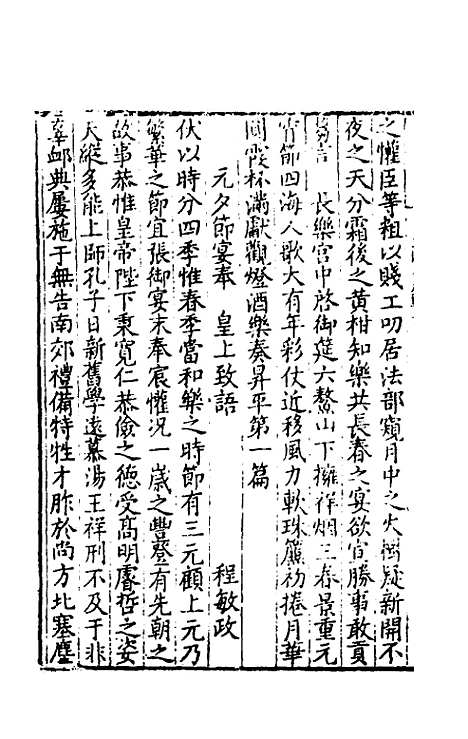 之懽臣等粗以賤工叨居法部窺月中之火樹疑新開不
夜之天分霜後之黃柑知樂共長春之宴欲宣勝事敢貢
芻言　長樂宮中啓御筵六鰲山下擁祥烟三春景重元
宵節四海人歌大有年彩仗近移風力軟珠簾初捲月華
圓霞杯滿獻觀燈酒樂奏昇平第一篇
元夕節宴奉　皇上致語　程敏政
伏以時分四季惟春季當和樂之時節有三元顧上元乃
繁華之節宜張御宴末奉宸懽況一歲之豐登有先朝之
故事恭惟皇帝陛下秉寬仁恭儉之德受高明睿哲之姿
天縱多能上師孔子日新舊學遠慕湯王祥刑不及于非
辜卹典屢施于無告南郊禮備特牲才胙於尚方北塞塵